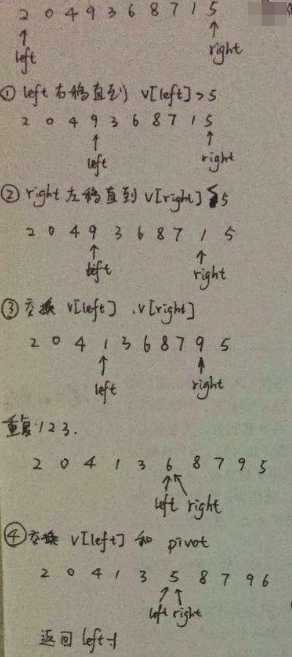 2 0 4 9 3 6 8 7 1 5
left right
① left 右移直到 v[left]>5
2 0 4 9 3 6 8 7 1 5
left right
② right 左移直到 v[right]<5
2 0 4 9 3 6 8 7 1 5
left right
③ 交换 v[left] .v[right]
2 0 4 1 3 6 8 7 9 5
left right
重复123.
2 0 4 1 3 6 8 7 9 5
left right
④ 交换 v[left] 和 pivot
2 0 4 1 3 5 8 7 9 6
left right
返回 left